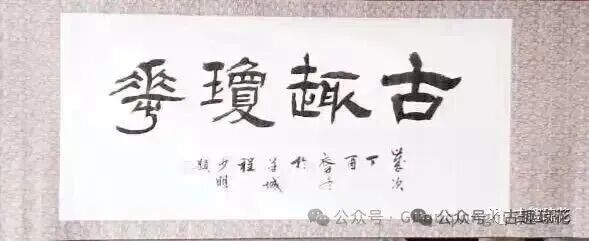 古趣瓊華
歲次
丁
酉
於
羊城
程
少明
題
公众号 · 公众号 · 古趣琼花